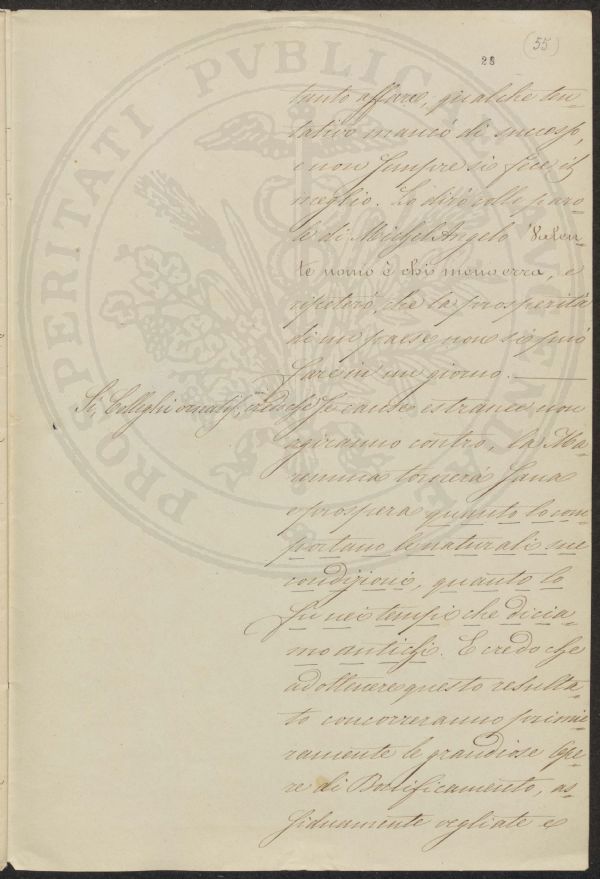 (55)
28
tanto affare, qualche ten-
tativo mancò di successo,
e non sempre si fece il
meglio. Lo dirò colle paro-
le di Michel Angelo "Valen-
te uomo è chi meno erra, e
ripeterò, che la prosperità
di un paese non si può
fare in un giorno.
Sì, Colleghi ornatiss. se cause estranee non
agiranno contro, la Ma-
remma tornerà sana
e prospera quanto lo com-
portano le naturali sue
condizioni, quanto lo
fu nei tempi che dicia-
mo antichi. E credo che
ad ottenere questo resulta-
to concorreranno primie
ramente le grandiose Ope-
re di Bonificamento, as-
siduamente vegliate e
PROSPERITATI PVBLICAE AVGENDAE